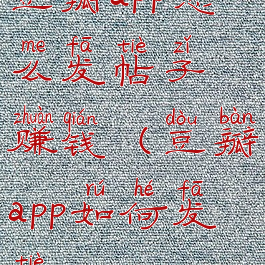 豆瓣app怎
me fā tiè zǐ
么发帖子
zhuàn qián dòu bàn
赚钱(豆瓣
rú hé fā
app如何发
tiè